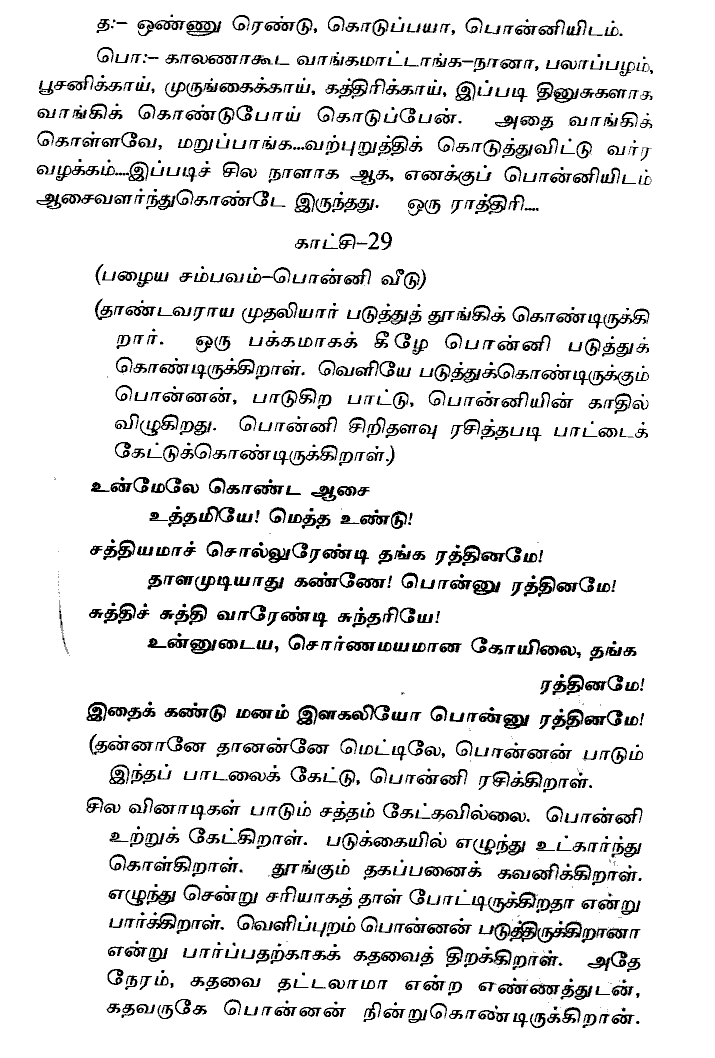 த:- ஒண்ணு ரெண்டு, கொடுப்பயா, பொன்னியிடம்.
பொ:- காலணாகூட வாங்கமாட்டாங்க-நானா, பலாப்பழம்,
பூசனிக்காய், முருங்கைக்காய், கத்திரிக்காய், இப்படி தினுசுகளாக
வாங்கிக் கொண்டுபோய் கொடுப்பேன். அதை வாங்கிக்
கொள்ளவே, மறுப்பாங்க....வற்புறுத்திக் கொடுத்துவிட்டு வர்ர
வழக்கம்....இப்படிச் சில நாளாக ஆக, எனக்குப் பொன்னியிடம்
ஆசைவளர்ந்துகொண்டே இருந்தது. ஒரு ராத்திரி....
காட்சி-29
(பழைய சம்பவம்-பொன்னி வீடு)
(தாண்டவராய முதலியார் படுத்துத் தூங்கிக் கொண்டிருக்கி
றார். ஒரு பக்கமாகக் கீழே பொன்னி படுத்துக்
கொண்டிருக்கிறாள். வெளியே படுத்துக்கொண்டிருக்கும்
பொன்னன், பாடுகிற பாட்டு, பொன்னியின் காதில்
விழுகிறது. பொன்னி சிறிதளவு ரசித்தபடி பாட்டைக்
கேட்டுக்கொண்டிருக்கிறாள்.)
உன்மேலே கொண்ட ஆசை
உத்தமியே! மெத்த உண்டு!
சத்தியமாச் சொல்லுரேண்டி தங்க ரத்தினமே!
தாளமுடியாது கண்ணே! பொன்னு ரத்தினமே!
சுத்திச் சுத்தி வாரேண்டி சுந்தரியே!
உன்னுடைய, சொர்ணமயமான கோயிலை, தங்க
ரத்தினமே!
இதைக் கண்டு மனம் இளகலியோ பொன்னு ரத்தினமே!
(தன்னானே தானன்னே மெட்டிலே, பொன்னன் பாடும்
இந்தப் பாடலைக் கேட்டு, பொன்னி ரசிக்கிறாள்.
சில வினாடிகள் பாடும் சத்தம் கேட்கவில்லை. பொன்னி
உற்றுக் கேட்கிறாள். படுக்கையில் எழுந்து உட்கார்ந்து
கொள்கிறாள். தூங்கும் தகப்பனைக் கவனிக்கிறாள்.
எழுந்து சென்று சரியாகத் தாள் போட்டிருக்கிறதா என்று
பார்க்கிறாள். வெளிப்புறம் பொன்னன் படுத்திருக்கிறானா
என்று பார்ப்பதற்காகக் கதவைத் திறக்கிறாள். அதே
நேரம், கதவை தட்டலாமா என்ற எண்ணத்துடன்,
கதவருகே பொன்னன் நின்றுகொண்டிருக்கிறான்.